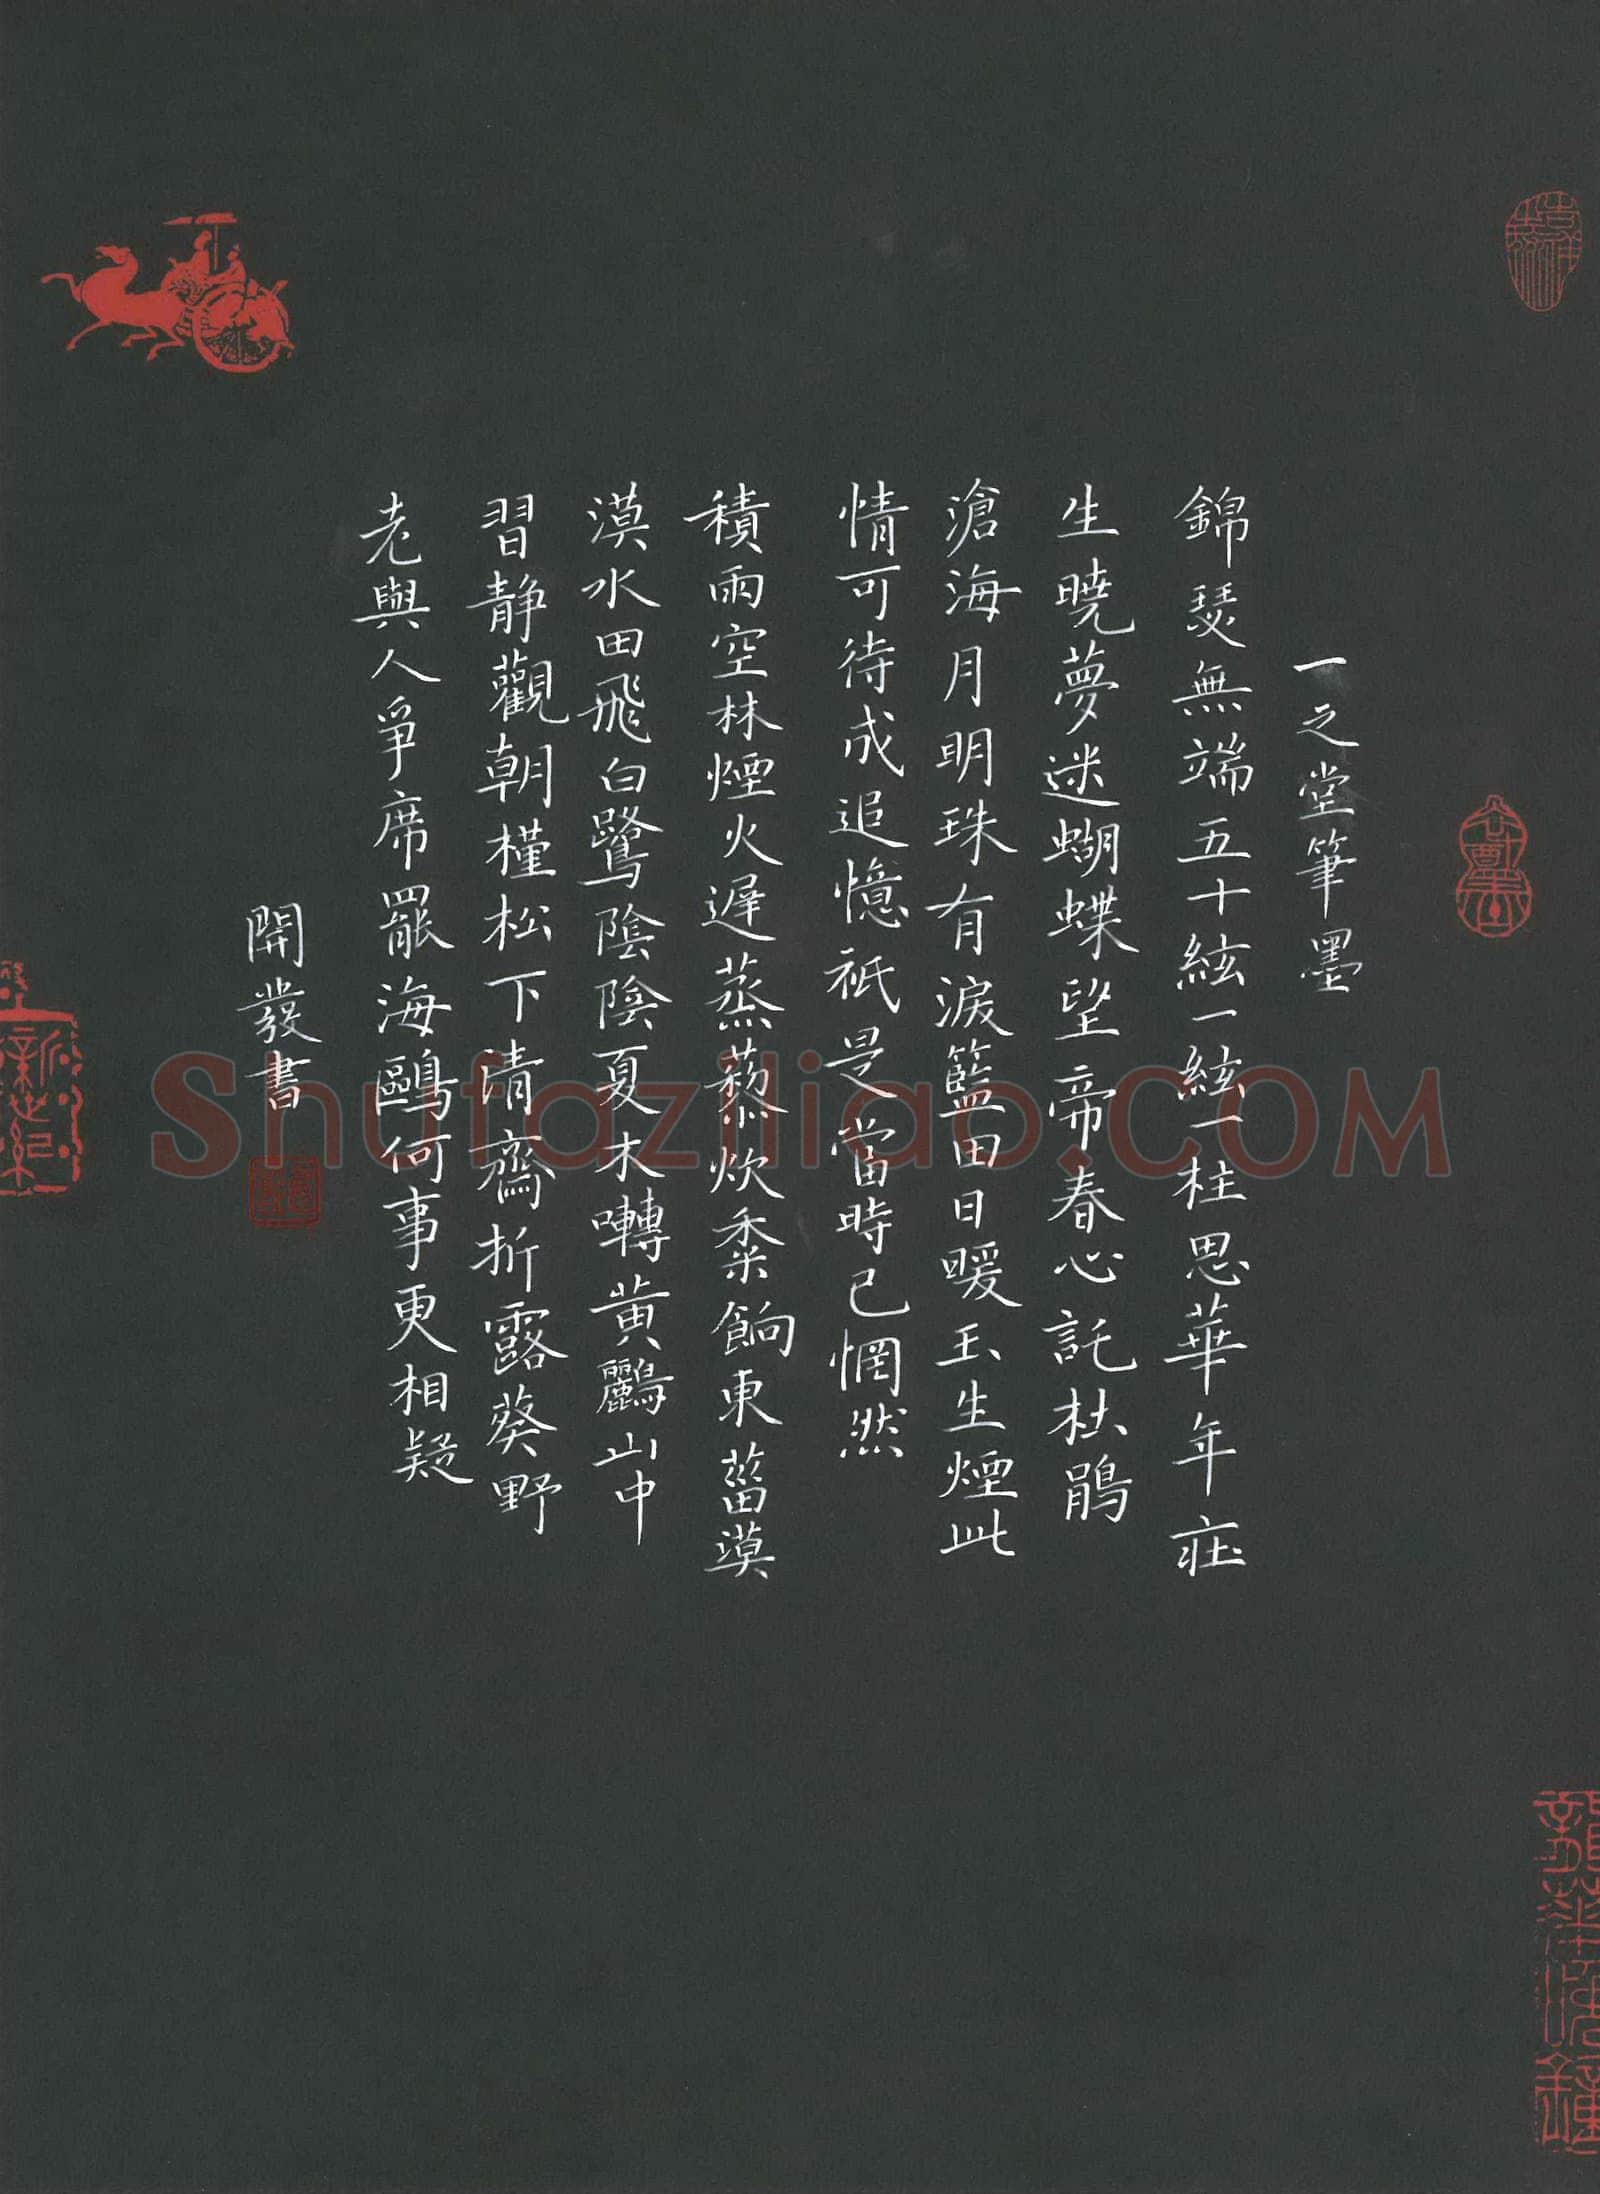 一之堂筆墨
錦瑟無端五十絃一絃一柱思華年莊
生曉夢迷蝴蝶望帝春心託杜鵑
滄海月明珠有淚藍田日暖玉生煙此
情可待成追憶祇是當時已惘然
積雨空林煙火遲蒸藜炊黍餉東菑漠
漠水田飛白鷺陰陰夏木囀黃鸝山中
習靜觀朝槿松下清齋折露葵野
老與人爭席罷海鷗何事更相疑
開發書
Shufaziliao.COM